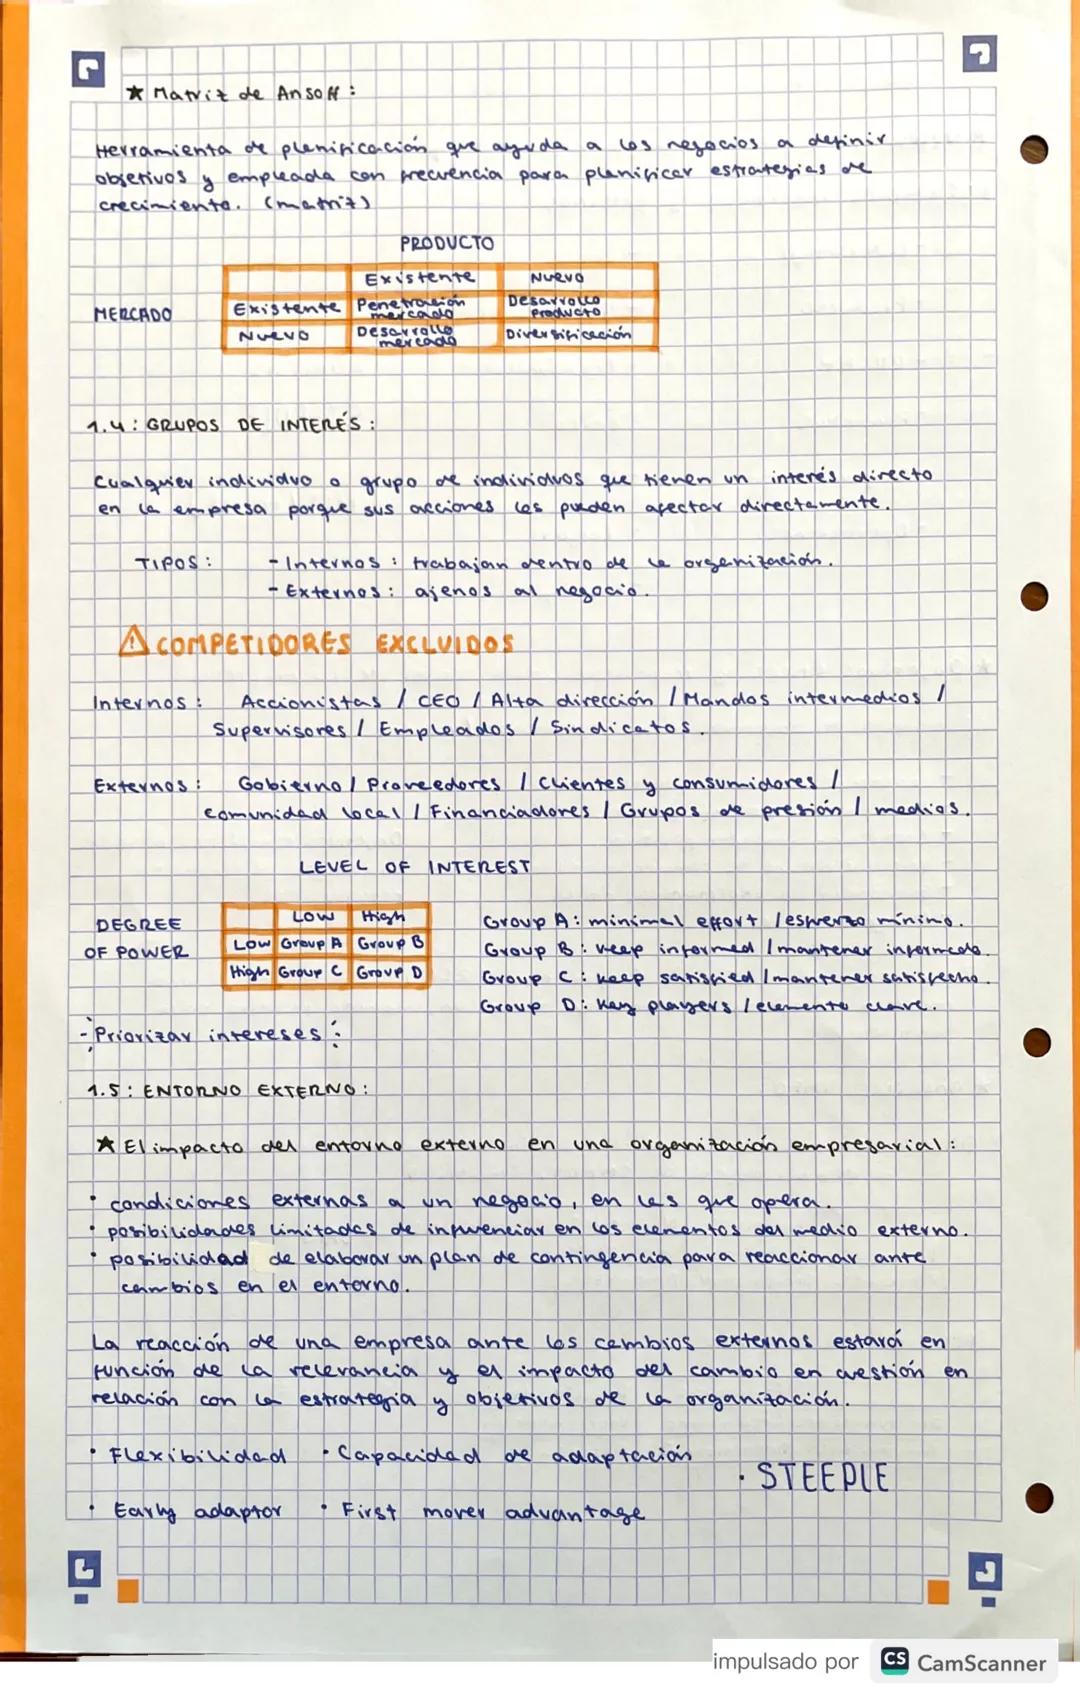 ★ Matriz de Ansoff:
Herramienta de planificación que ayuda a los negocios a definir
objetivos y empleada con frecuencia para planificar estrategias de
crecimiento. (matriz)
PRODUCTO
Existente Nuevo
MERCADO
Existente Penetración mercado Desarrollo Producto
Nuevo Desarrollo mercado Diversificación
1.4: GRUPOS DE INTERÉS:
Cualquier individuo o grupo de individuos que tienen un interés directo
en la empresa porque sus acciones les pueden afectar directamente.
TIPOS: - Internos: trabajan dentro de la organización.
- Externos: ajenos al negocio.
⚠ COMPETIDORES EXCLUIDOS
Internos: Accionistas / CEO / Alta dirección / Mandos intermedios /
Supervisores / Empleados / Sindicatos.
Externos: Gobierno / Proveedores / Clientes y consumidores /
comunidad local / Financiadores / Grupos de presión / medios.
LEVEL OF INTEREST
DEGREE
OF POWER
Low High
Low Group A Group B
High Group C Group D
Group A: minimal effort / esfuerzo mínimo.
Group B: keep informed / mantener informado.
Group C: keep satisfied / mantener satisfecho.
Group D: key players / elemento clave.
- Priorizar intereses:
1.5: ENTORNO EXTERNO:
★ El impacto del entorno externo en una organización empresarial:
· condiciones externas a un negocio, en las que opera.
· posibilidades limitadas de influenciar en los elementos del medio externo.
· posibilidad de elaborar un plan de contingencia para reaccionar ante
cambios en el entorno.
La reacción de una empresa ante los cambios externos estará en
función de la relevancia y el impacto del cambio en cuestión en
relación con la estrategia y objetivos de la organización.
· Flexibilidad · Capacidad de adaptación
· STEEPLE
· Early adaptor · First mover advantage
impulsado por CS CamScanner